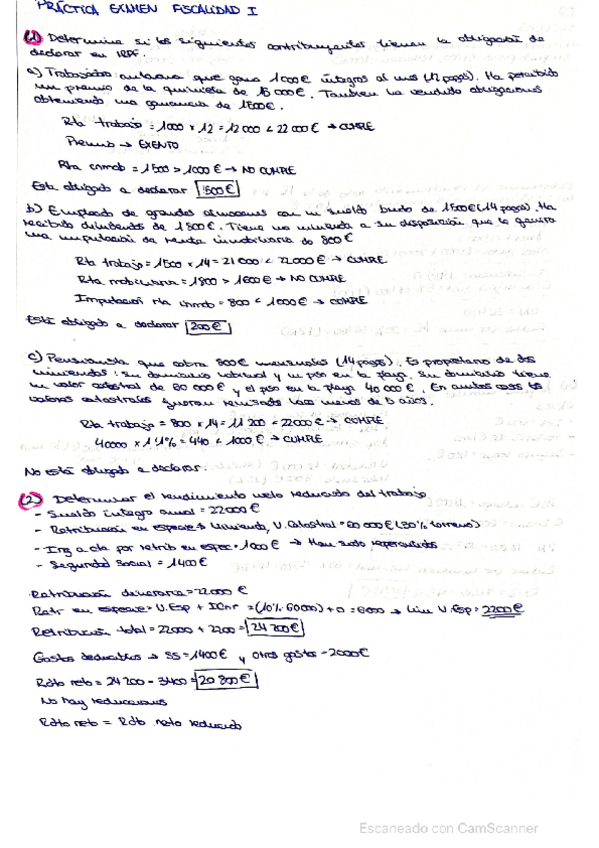 PRÁCTICA EXAMEN FISCALIDAD I
(1) Determina si los siguientes contribuyentes tienen la obligación de
declarar en IRPF.
a) Trabajador autonomo que gana 1000€ íntegros al mes (12 pagas). Ha percibido
un premio de la quiniela de 15 000€. Tambien ha vendido obligaciones
obteniendo una ganancia de 1500€.
Rta trabajo = 1000 × 12 = 12 000 < 22 000 € → CUMPLE
Premio → EXENTO
Rta = 1500 > 1000 € → NO CUMPLE
Esta obligado a declarar 1500€
b) Empleado de grandes almacenes con un sueldo bruto de 1500€ (14 pagas). Ha
recibido dividendos de 1800€. Tiene una vivienda a su disposición que le genera
una imputación de renta inmobiliaria de 800€
Rta trabajo = 1500 × 14 = 21 000 < 22000 € → CUMPLE
Rta mobiliaria = 1800 > 1600 € → NO CUMPLE
Imputación rta inmob = 800 < 1000 € → CUMPLE
Está obligado a declarar 200€
c) Pensionista que cobra 800€ mensuales (14 pagas). Es propietario de dos
viviendas: su domicilio habitual y un piso en la playa. Su domicilio tiene
un valor catastral de 80 000€ y el piso en la playa 40 000€. En ambos casos los
valores catastrales fueron revisados hace menos de 5 años.
Rta trabajo = 800 × 14 = 11 200 < 22000 € → CUMPLE
40000 × 1'1% = 440 < 1000 € → CUMPLE
No está obligado a declarar.
(2) Determinar el rendimiento neto reducido del trabajo
- Sueldo íntegro anual = 22000 €
- Retribución en especie → Vivienda, V. Catastral = 60 000€ (30% terreno)
- Ing a cta por retrib en espec = 1000 € → Han sido repercutidos
- Seguridad Social = 1400 €
Retribución dineraria = 22000 €
Retr en especie = V. Esp + ICnr = (10% 60000) + 0 = 6000 → Lim V. Esp = 2200 €
Retribución total = 22000 + 2200 = 24 200 €
Gastos deducibles → SS = 1400 € y otros gastos = 2000€
Rdto neto = 24 200 - 3400 = 20 800 €
No hay reducciones
Rdto neto = Rdto neto reducido
Escaneado con CamScanner